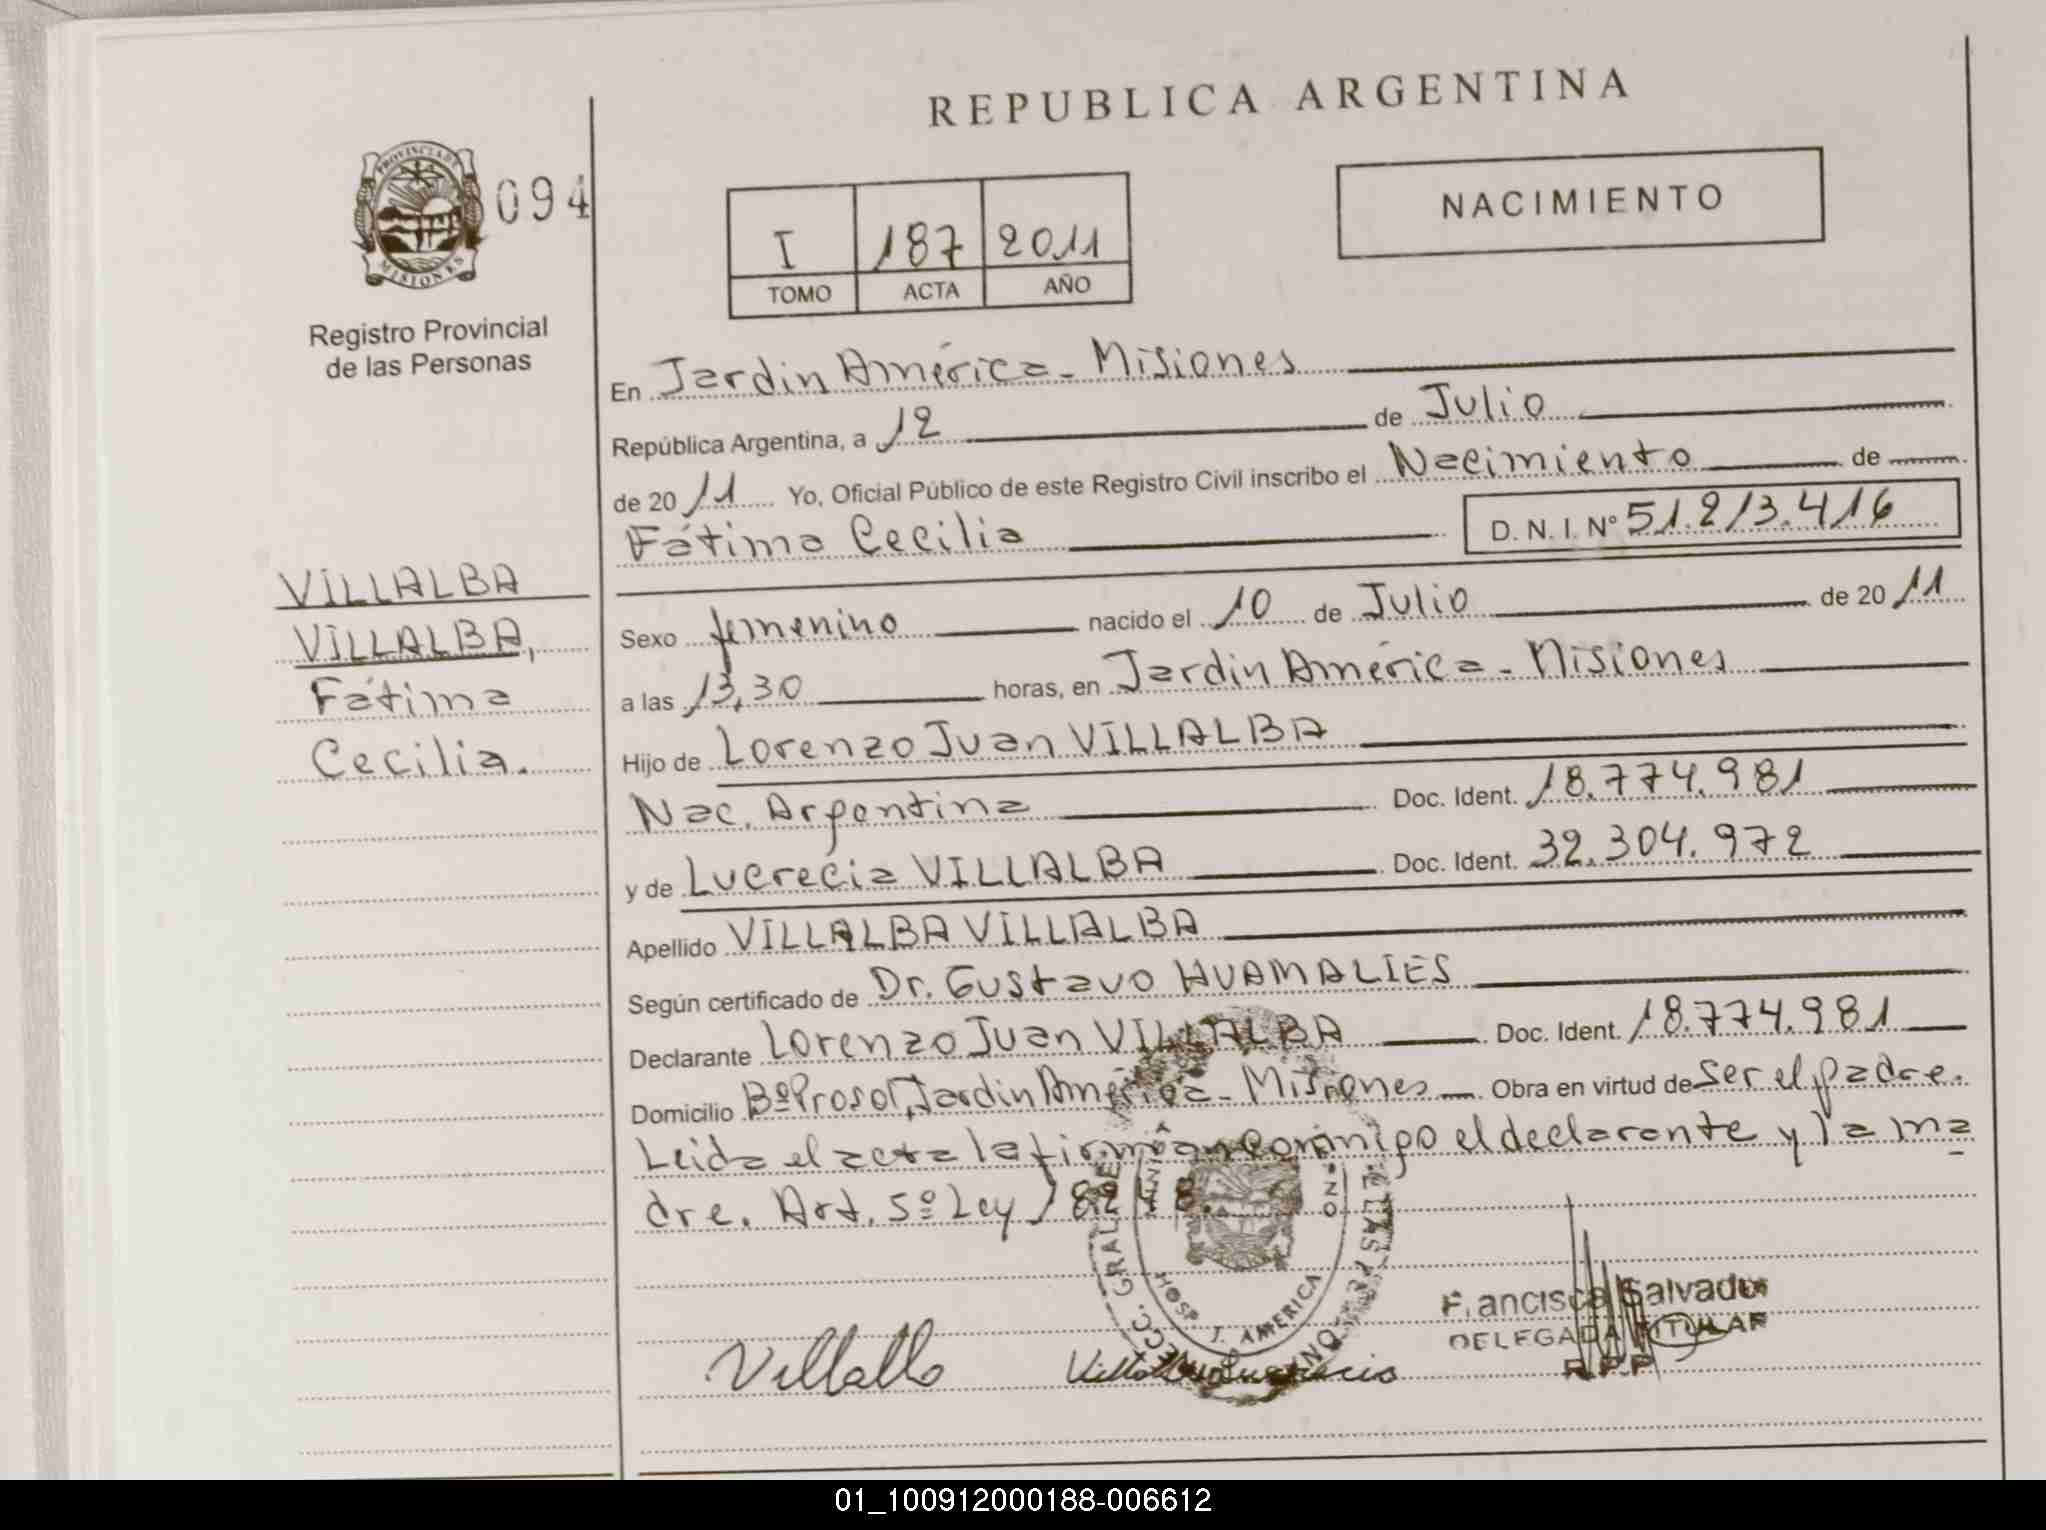 REPUBLICA ARGENTINA
PROVINCIA DE
MISIONES
094
Registro Provincial
de las Personas
I 187 2011
TOMO ACTA AÑO
NACIMIENTO
En Jardin América - Misiones
República Argentina, a 12 de Julio
de 2011 Yo, Oficial Público de este Registro Civil inscribo el Nacimiento de
Fátima Cecilia D. N. I. Nº 51.213.416
VILLALBA
VILLALBA,
Fátima
Cecilia.
Sexo femenino nacido el 10 de Julio de 2011
a las 13,30 horas, en Jardin América - Misiones
Hijo de Lorenzo Juan VILLALBA
Nac. Argentina Doc. Ident. 18.774.981
y de Lucrecia VILLALBA Doc. Ident. 32.304.972
Apellido VILLALBA VILLALBA
Según certificado de Dr. Gustavo HUAMALIES
Declarante Lorenzo Juan VILLALBA Doc. Ident. 18.774.981
Domicilio Bº Prosol, Jardin América - Misiones Obra en virtud de ser el padre.
Leida el acta la firman conmigo el declarante y la ma
dre. Art. 5º Ley 18248.
HOSP. J. AMERICA
Francisca Salvador
DELEGADA TITULAR
R.P.P
Villalba
Villalba Lucrecia
01_100912000188-006612